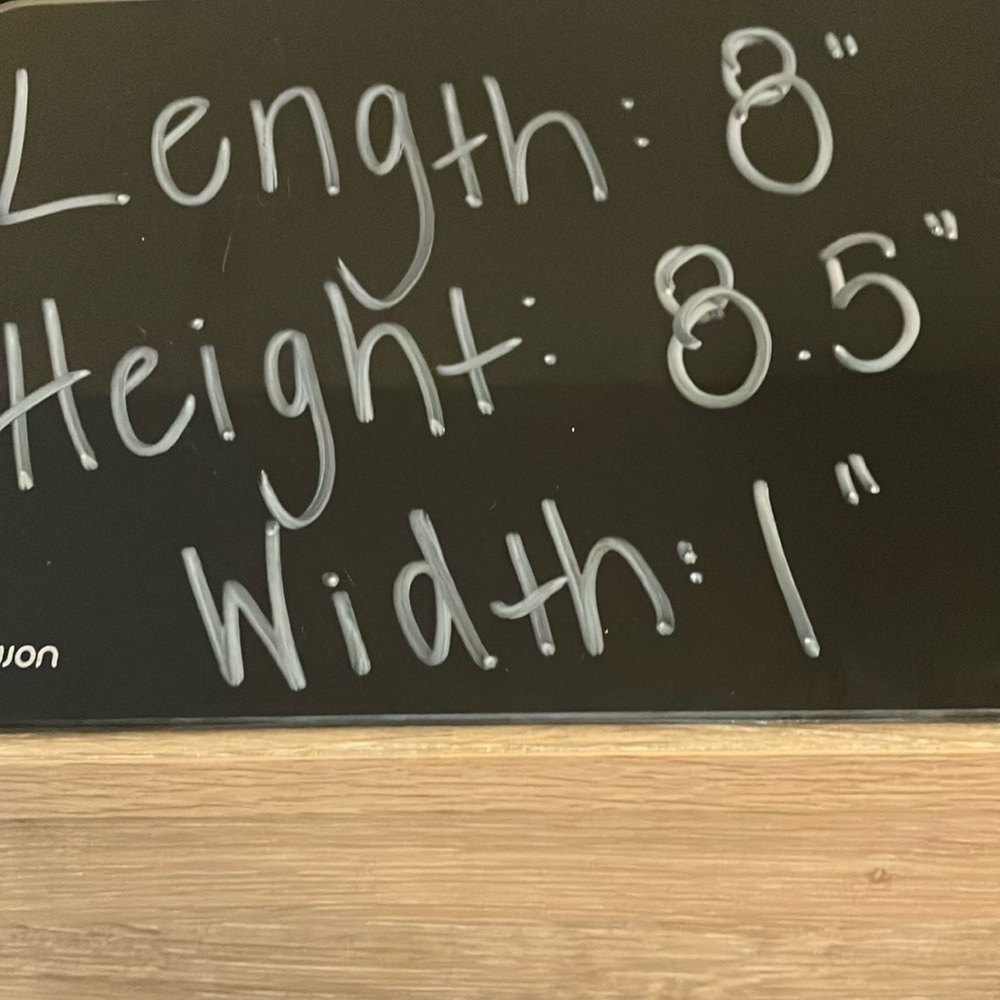 Length: 8"
Height: 8.5"
Width: 1"